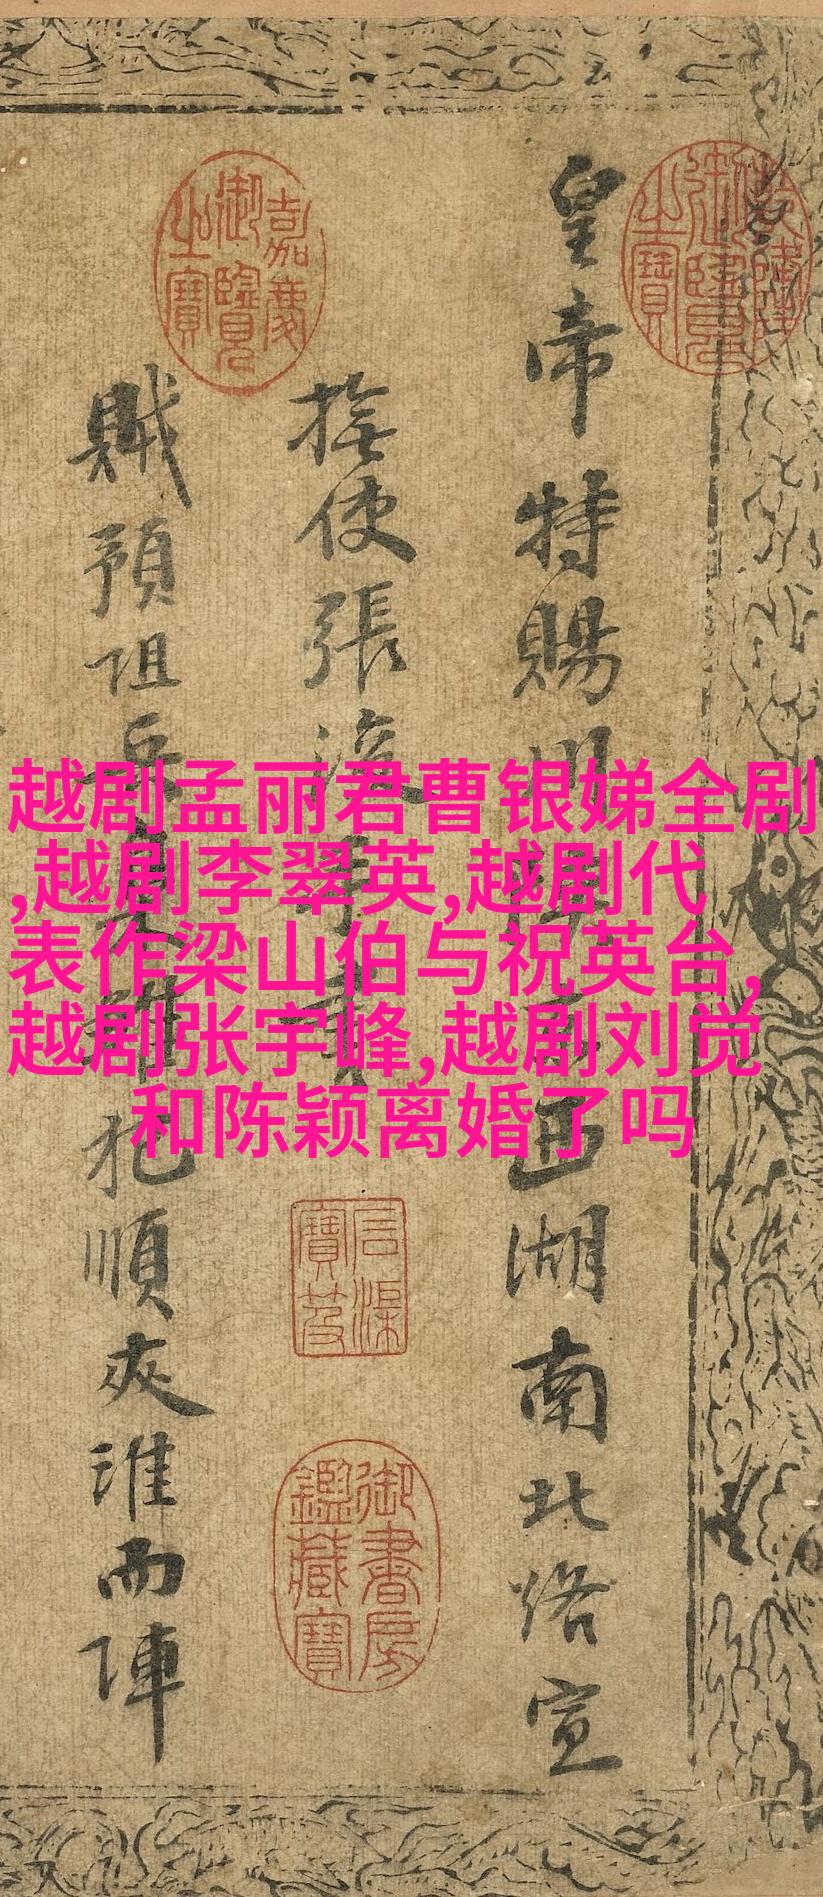 皇帝特賜川陝京西湖南北路宣
撫使張浚手
賊預阻兵犯順夾淮而陣
越剧孟丽君曹银娣全剧
,越剧李翠英,越剧代
表作梁山伯与祝英台,
越剧张宇峰,越剧刘觉
和陈颖离婚了吗
嘉慶御覽之寶
石渠寶笈
御書房鑑藏寶